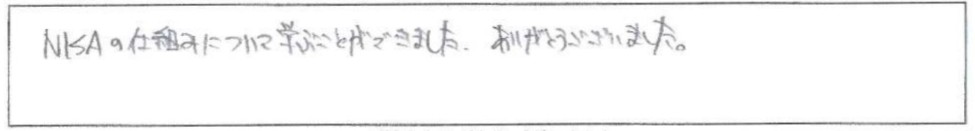 NISAの仕組みについて学ぶことができました。ありがとうございました。